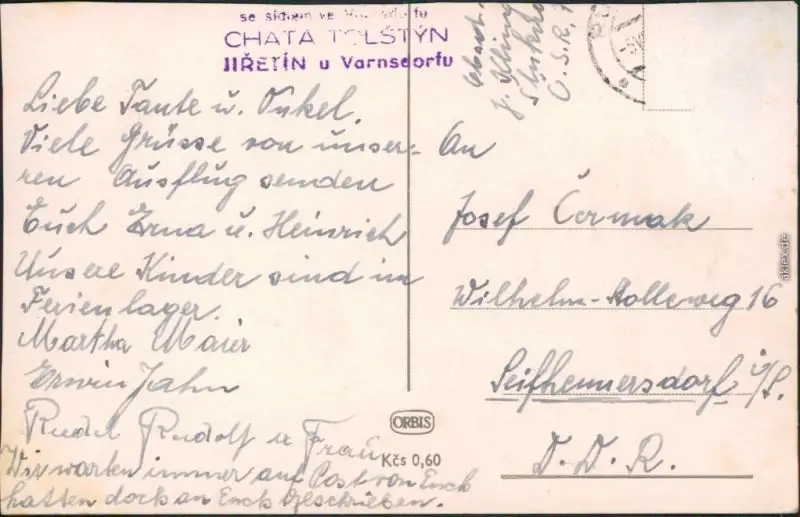 se sídlem ve Varnsdorfu
CHATA TOLŠTÝN
JIŘETÍN u Varnsdorfu
Liebe Tante u. Onkel.
Viele Grüsse von unser-
ren Ausflug senden
Euch Erna u. Heinrich
Unsere Kinder sind im
Ferienlager.
Martha Maier
Erwin Jahn
Rudolf u Frau
Wir warten immer auf Post von Euch
hatten doch an Euch geschrieben.
Absch.
An
Josef Čermak
Wilhelm-Bolleweg 16
Seifhennersdorf i/S.
D. D. R.
ORBIS
Kčs 0,60
akpool.de